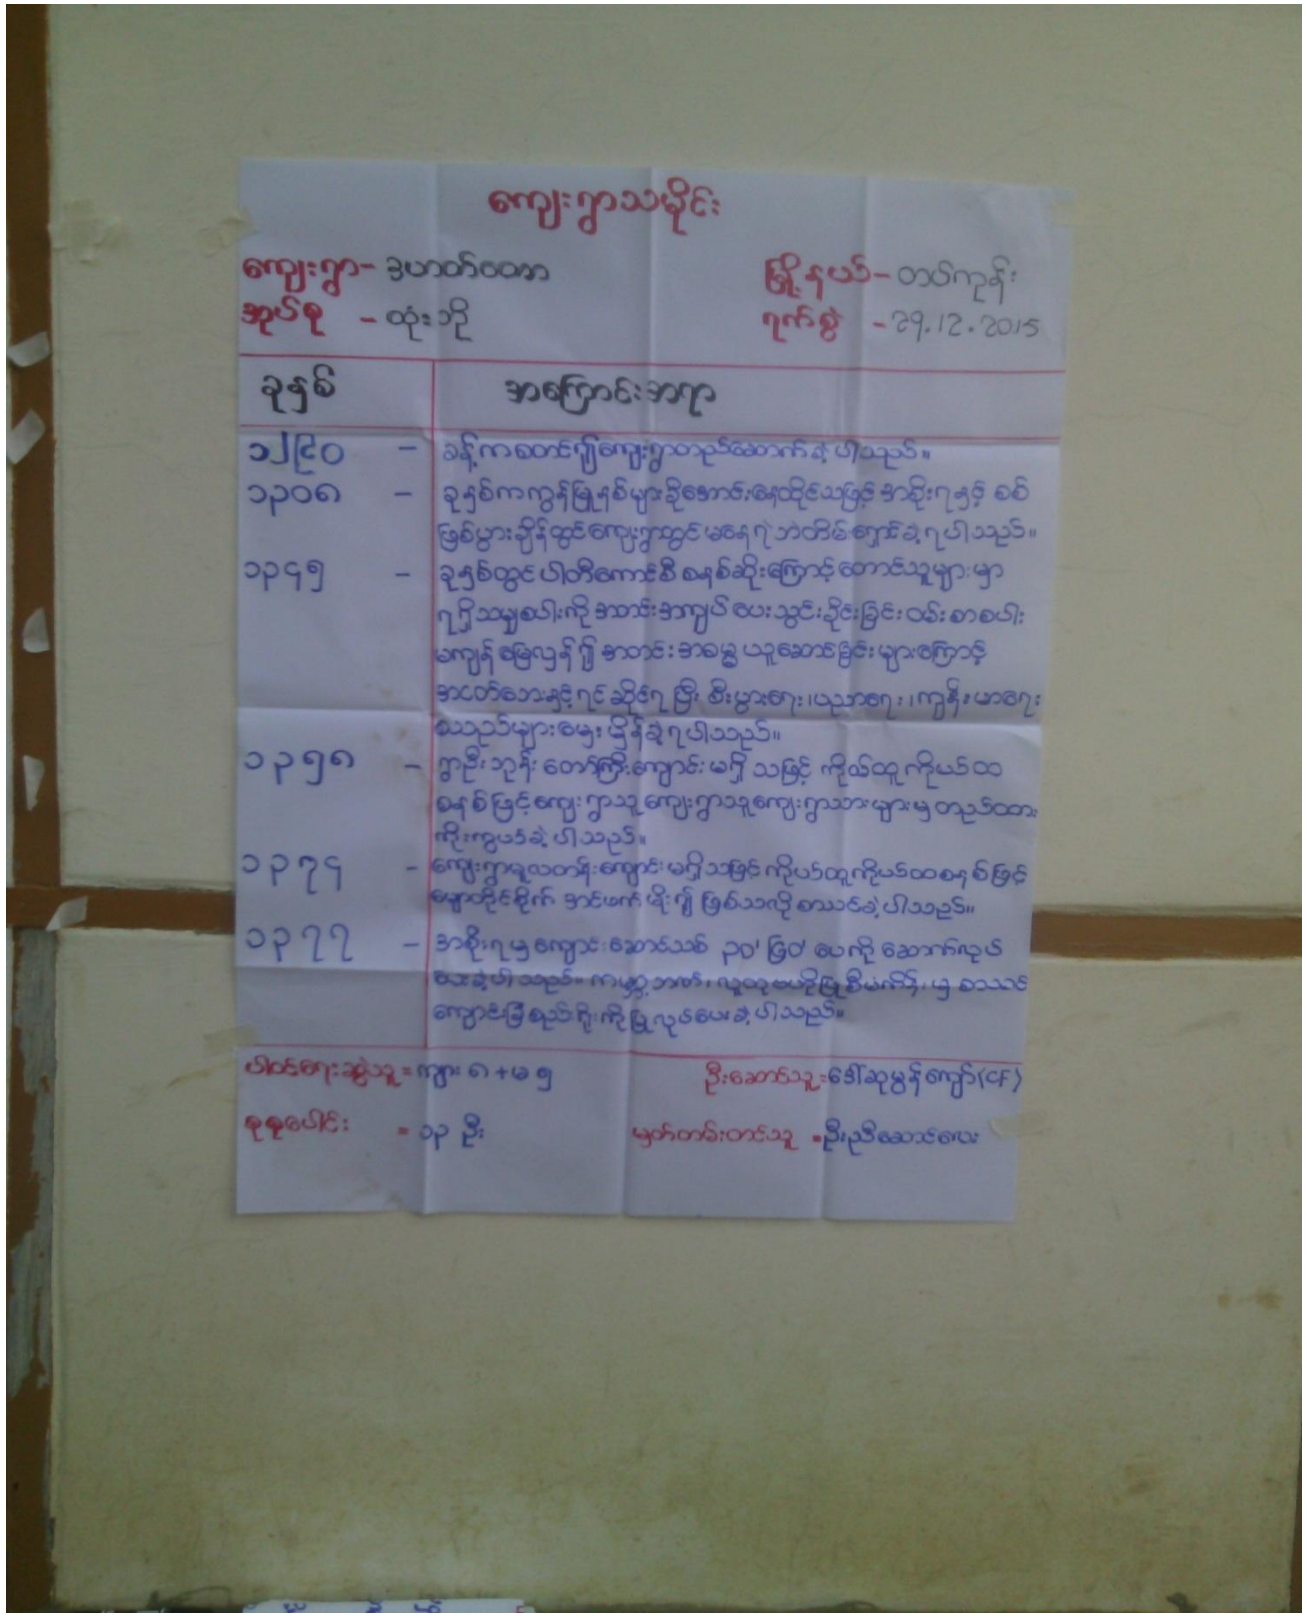 ကျေးရွာသမိုင်း
ကျေးရွာ- ဒဟတ်တော မြို့နယ် - တပ်ကုန်း
အုပ်စု - ထုံးဘို ရက်စွဲ - 29.12.2015
ခုနှစ် အကြောင်းအရာ
၁၂၉၀ - ခန့်ကစတင်၍ကျေးရွာတည်ဆောက်ခဲ့ပါသည်။
၁၃၀၈ - ခုနှစ်ကကွန်မြူနစ်များခိုအောင်းနေထိုင်သဖြင့် အစိုးရနှင့် စစ်
ဖြစ်ပွားချိန်တွင်ကျေးရွာတွင်မနေရဲဘဲတိမ်းရှောင်ခဲ့ရပါသည်။
၁၃၄၅ - ခုနှစ်တွင်ပါတီကောင်စီစနစ်ဆိုးကြောင့်တောင်သူများမှာ
ရရှိသမျှစပါးကိုအတင်းအကျပ်ပေးသွင်းခိုင်းခြင်းဝမ်းစာစပါး
မကျန်မြေလှန်၍အတင်းအဓမ္မယူဆောင်ခြင်းများကြောင့်
အငတ်ဘေးနှင့်ရင်ဆိုင်ရပြီး စီးပွားရေး၊ပညာရေး၊ကျန်းမာရေး
စသည်များမှေးမှိန်ခဲ့ရပါသည်။
၁၃၅၈ - ရွာဦးဘုန်းတော်ကြီးကျောင်းမရှိသဖြင့် ကိုယ်ထူကိုယ်ထ
စနစ်ဖြင့်ကျေးရွာသူကျေးရွာသူကျေးရွာသားများမှတည်ထား
ကိုးကွယ်ခဲ့ပါသည်။
၁၃၇၄ - ကျေးရွာမူလတန်းကျောင်းမရှိသဖြင့်ကိုယ်ထူကိုယ်ထစနစ်ဖြင့်
မျောတိုင်စိုက် အင်ဖက်မိုး၍ ဖြစ်သလိုစာသင်ခဲ့ပါသည်။
၁၃၇၇ - အစိုးရမှကျောင်းဆောင်သစ် ၃၀' ပေကို ဆောက်လုပ်
ပေးခဲ့ပါသည်။ ကမ္ဘာ့ဘဏ်၊ လူထုဗဟိုပြုစီမံကိန်း မှ စာသင်
ကျောင်းခြံစည်းရိုးကိုပြုလုပ်ပေးခဲ့ပါသည်။
ပါဝင်ရေးဆွဲသူ = ကျား ၈ + မ ၅ ဦးဆောင်သူ = ဒေါ်ဆုမွန်ကျော်(CF)
စုစုပေါင်း = ၁၃ ဦး မှတ်တမ်းတင်သူ = ဦးညီဆောင်လေး